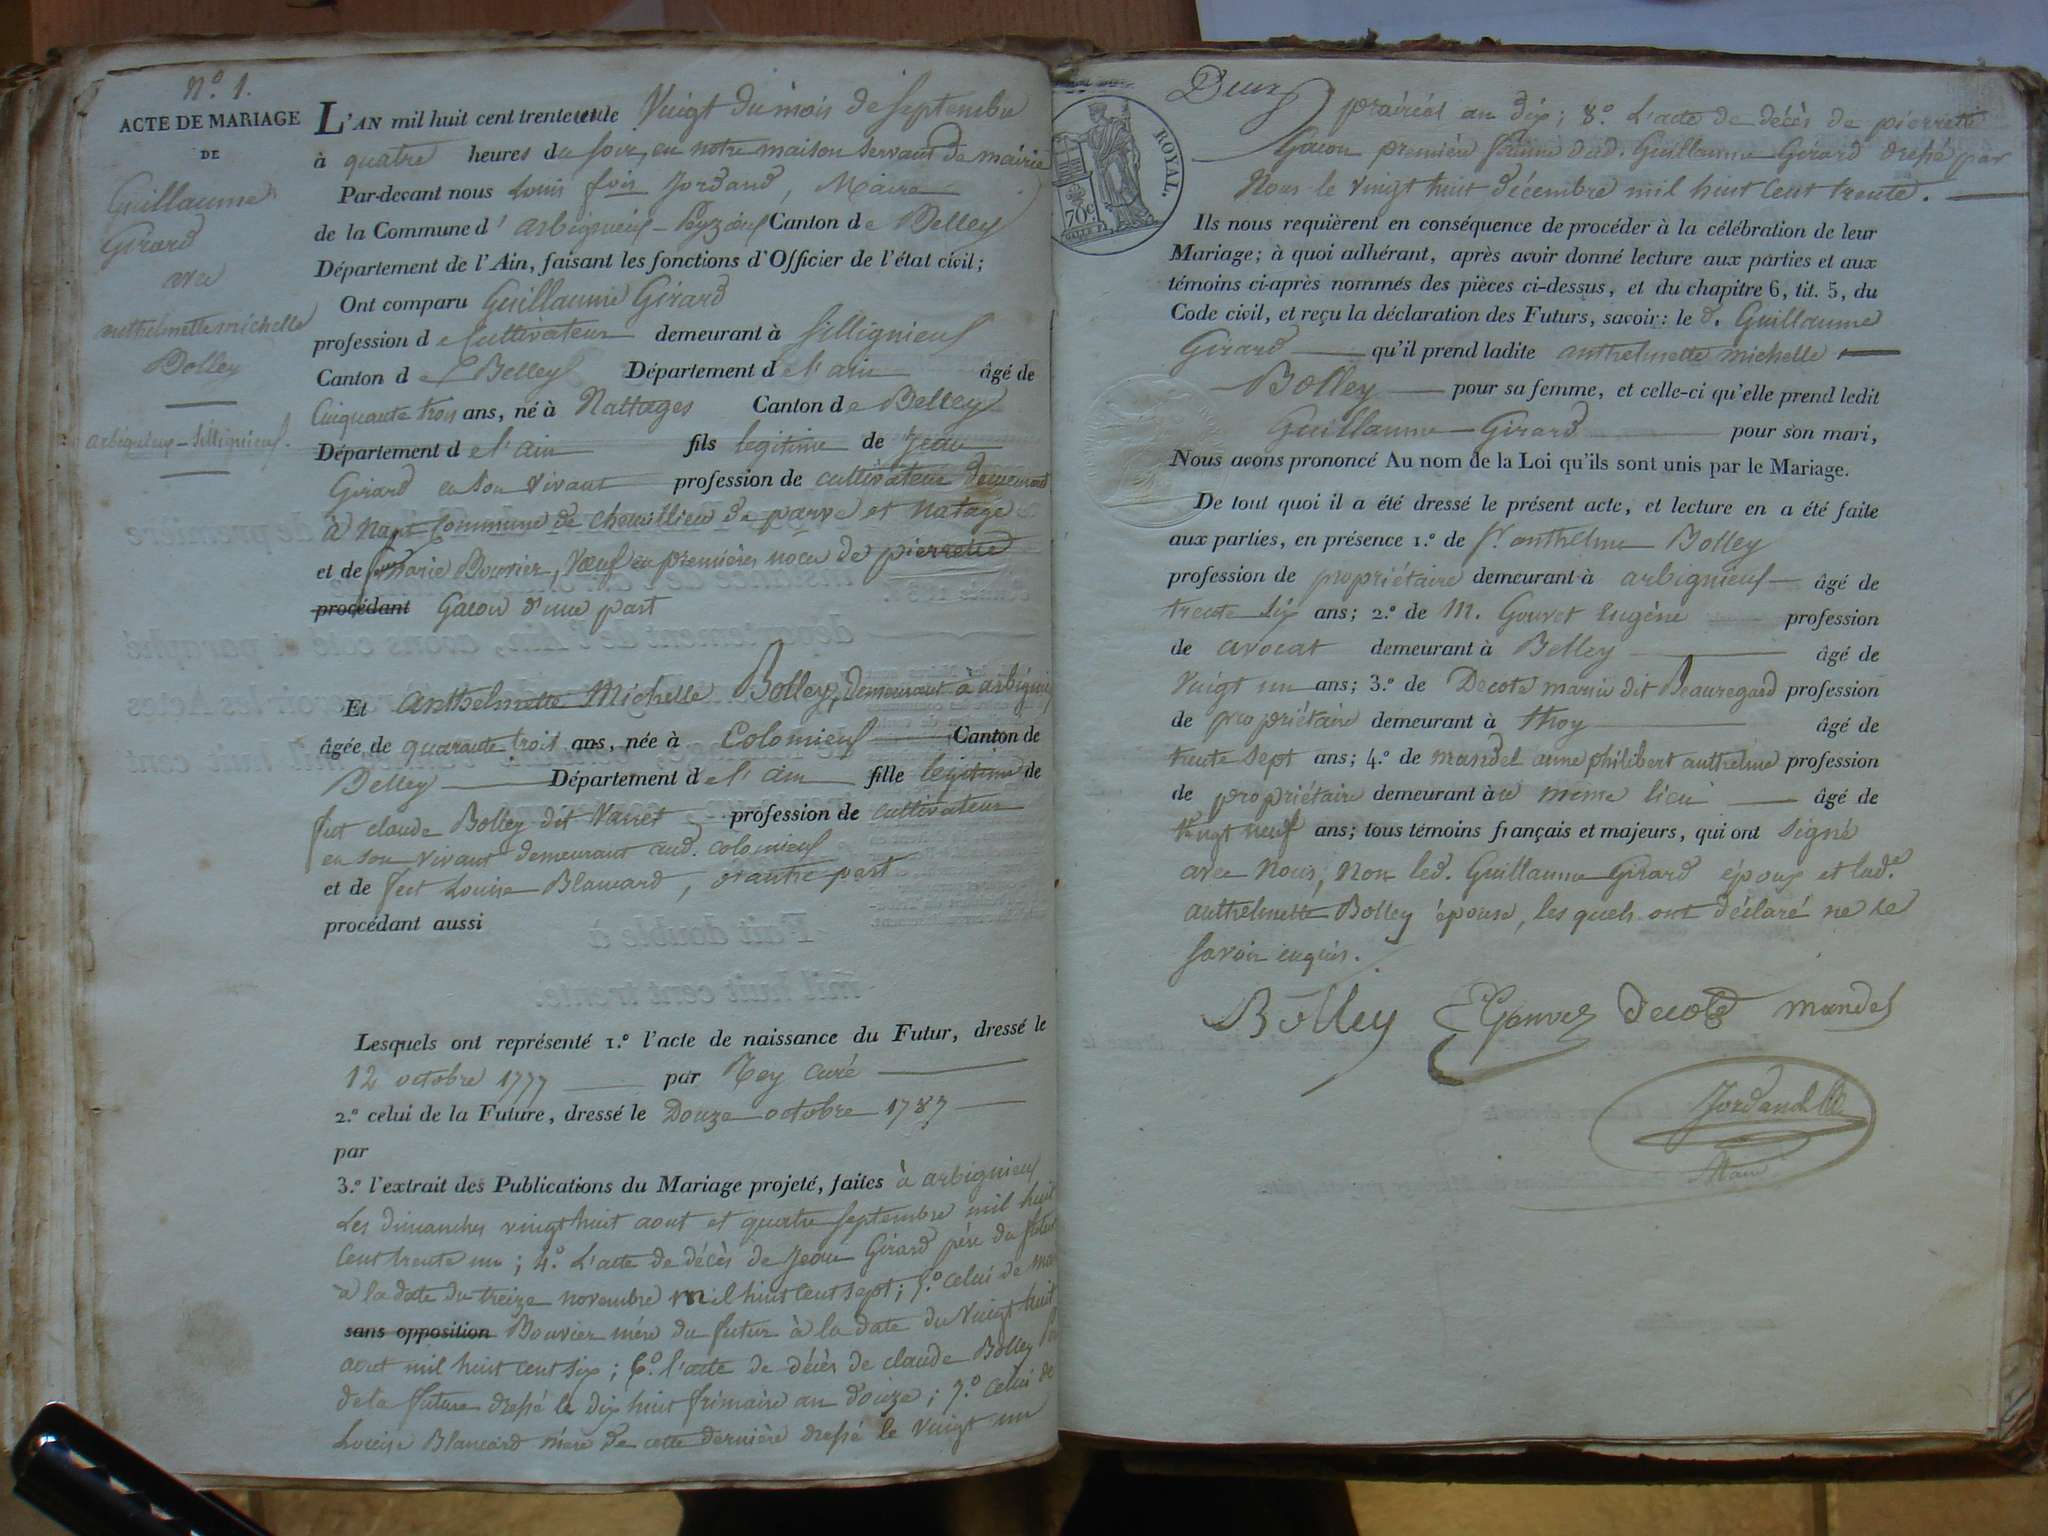 N.º 1.
ACTE DE MARIAGE
DE
Guillaume
Girard
avec
anthelmette michelle
Bolley
arbignieux - Sillignieux.
L'AN mil huit cent trente un le Vingt du mois de Septembre
à quatre heures du soir, en notre maison servant de mairie
Par-devant nous Louis Jordand, Maire
de la Commune d' arbignieux - Peyzieux Canton de Belley
Département de l'Ain, faisant les fonctions d'Officier de l'état civil;
Ont comparu Guillaume Girard
profession de Cultivateur demeurant à Sillignieux
Canton de Belley Département de l'ain âgé de
Cinquante trois ans, né à Nattages Canton de Belley
Département de l'ain fils legitime de Jean
Girard en son vivant profession de cultivateur demeurant
à Nant Commune de de parve et natage
et de Marie Bouvier, Veuf en premières noces de pierrette
procédant Gacon d'une part
Et Anthelmette Michelle Bolley, demeurant à arbignieux
âgée de quarante trois ans, née à Colomieux Canton de
Belley Département de l'ain fille legitime de
feu claude Bolley dit Varret profession de cultivateur
en son vivant demeurant aud. colomieux
et de feue Louise Blancard, d'autre part
procédant aussi
Lesquels ont représenté 1.º l'acte de naissance du Futur, dressé le
12 octobre 1777 par Rey curé
2.º celui de la Future, dressé le Douze octobre 1787
par
3.º l'extrait des Publications du Mariage projeté, faites à arbignieux
Les dimanches vingt huit aout et quatre septembre mil huit
cent trente un; 4.º L'acte de décès de Jean Girard père du futur
à la date du treize novembre mil huit cent sept; 5.º celui de marie
sans opposition Bouvier mère du futur à la date du Vingt huit
aout mil huit cent six; 6.º l'acte de décès de claude Bolley
de la future dressé le dix huit frimaire an douze; 7.º celui de
Louise Blancard mère de cette dernière dressé le vingt un
Deux
ROYAL.
70 c.
prairéal an dix; 8.º L'acte de décès de pierrette
Gacon première femme dud. Guillaume Girard dressé par
Nous le vingt huit décembre mil huit cent trente.
Ils nous requièrent en conséquence de procéder à la célébration de leur
Mariage; à quoi adhérant, après avoir donné lecture aux parties et aux
témoins ci-après nommés des pièces ci-dessus, et du chapitre 6, tit. 5, du
Code civil, et reçu la déclaration des Futurs, savoir: le d. Guillaume
Girard qu'il prend ladite anthelmette michelle
Bolley pour sa femme, et celle-ci qu'elle prend ledit
Guillaume Girard pour son mari,
Nous avons prononcé Au nom de la Loi qu'ils sont unis par le Mariage.
De tout quoi il a été dressé le présent acte, et lecture en a été faite
aux parties, en présence 1.º de Sr. anthelme Bolley
profession de propriétaire demeurant à arbignieux âgé de
trente six ans; 2.º de M. Gouvet Eugène profession
de avocat demeurant à Belley âgé de
Vingt un ans; 3.º de Decote marin dit Beauregard profession
de propriétaire demeurant à thoy âgé de
trente sept ans; 4.º de mandel anne philibert anthelme profession
de propriétaire demeurant à ce meme lieu âgé de
Vingt neuf ans; tous témoins français et majeurs, qui ont signé
avec Nous, Non led. Guillaume Girard époux et lad.e
anthelmette Bolley épouse, lesquels ont déclaré ne le
savoir enquis.
Bolley EGouvet Decote mandel
Jordand
Maire